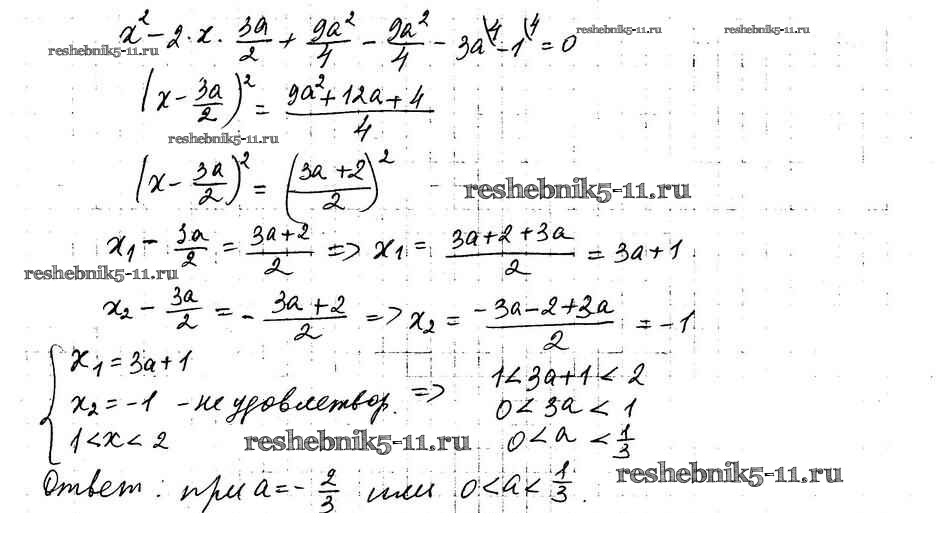 x² - 2·x·3a/2 + 9a²/4 - 9a²/4 - 3a\4 - 1\4 = 0
reshebnik5-11.ru reshebnik5-11.ru reshebnik5-11.ru
(x - 3a/2)² = (9a² + 12a + 4)/4
reshebnik5-11.ru
(x - 3a/2)² = ((3a + 2)/2)²
reshebnik5-11.ru
x₁ - 3a/2 = (3a+2)/2 => x₁ = (3a+2+3a)/2 = 3a+1
reshebnik5-11.ru
x₂ - 3a/2 = -(3a+2)/2 => x₂ = (-3a-2+3a)/2 = -1
{ x₁ = 3a+1
x₂ = -1 - не удовлетвор. =>
1 < x < 2
1 < 3a+1 < 2
0 < 3a < 1
0 < a < 1/3
reshebnik5-11.ru
reshebnik5-11.ru
Ответ: при a = -2/3 или 0 < a < 1/3.